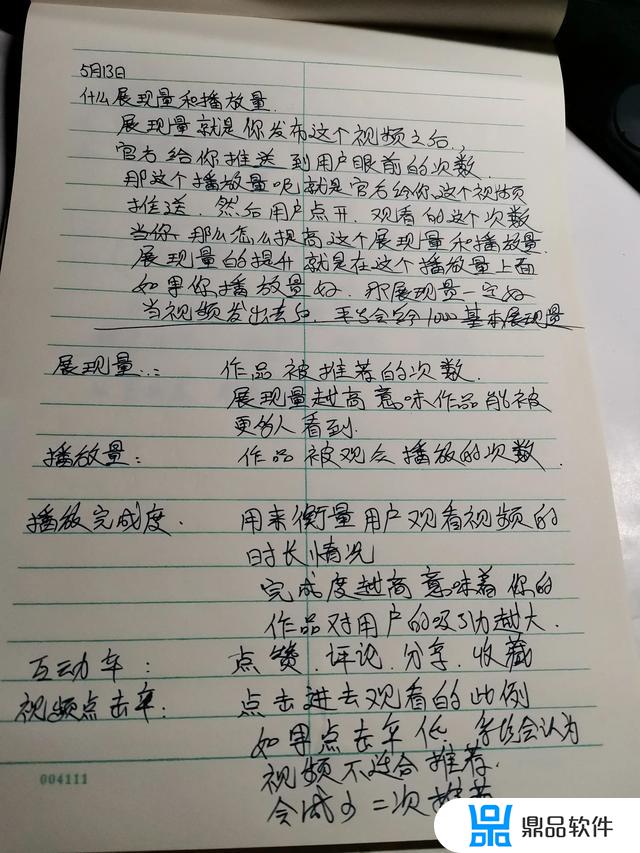 5月13日
什么展现量和播放量.
展现量就是你发布这个视频之后,
官方给你推送到用户眼前的次数.
那这个播放量呢就是官方给你这个视频
推送.然后用户点开.观看的这个次数
当你.那么怎么提高这个展现量和播放量.
展现量的提升就是在这个播放量上面
如果你播放量好,那展现量一定好
当视频发出去后.平台会给1000基本展现量
展现量..: 作品被推荐的次数.
展现量越高意味作品能被
更多人看到.
播放量: 作品被观众播放的次数.
播放完成度. 用来衡量用户观看视频的
时长情况
完成度越高意味着你的
作品对用户的吸引力越大.
互动率: 点赞.评论.分享.收藏
视频点击率: 点击进去观看的比例
如果点击率低.系统会认为
视频不适合推荐.
会减少二次推荐
004111
鼎品软件